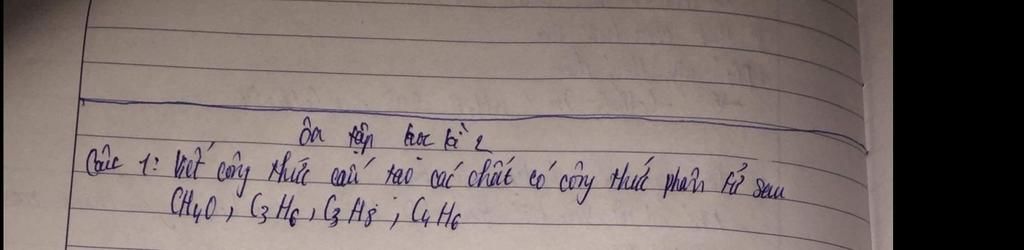 Ôn tập học kì 2
Câu 1: Viết công thức cấu tạo các chất có công thức phân tử sau
CH4O, C3H6, C3H8, C4H6